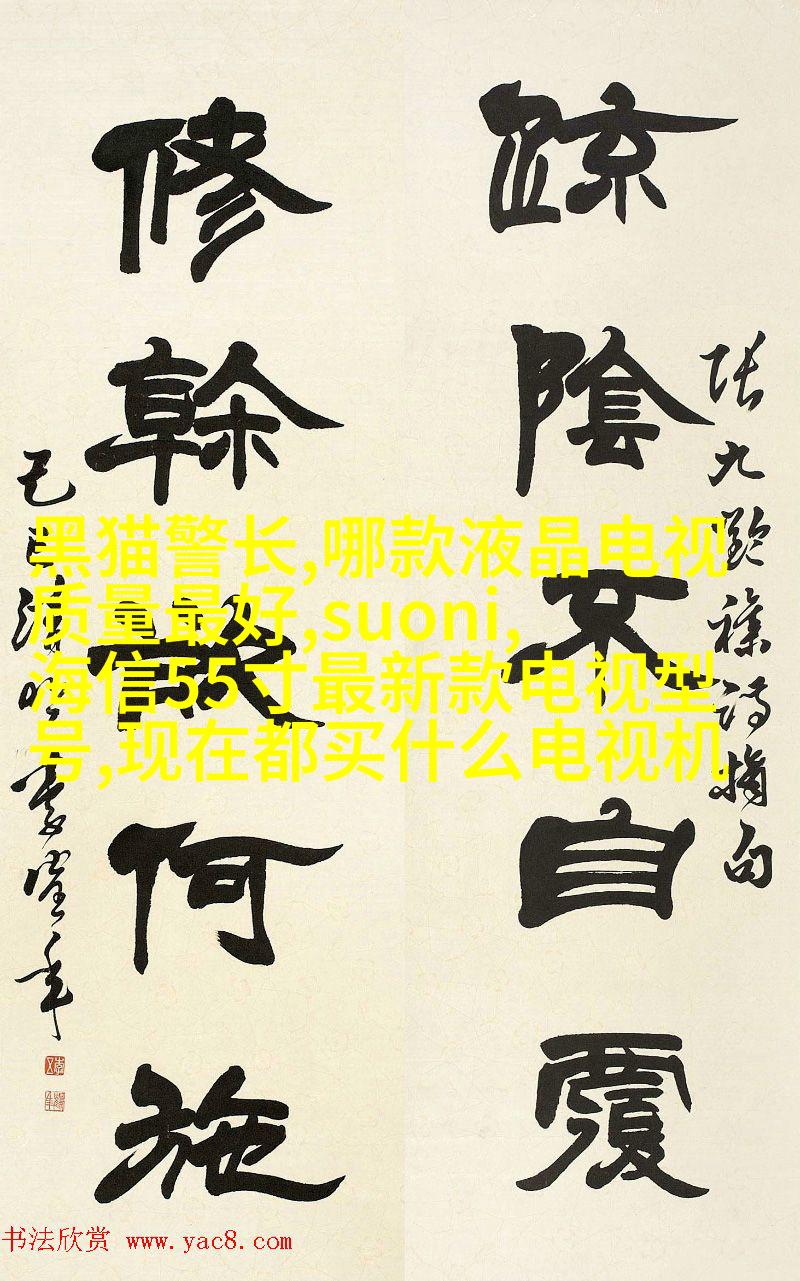 疏陰不自覆
張九齡雜詩摘句
修幹何施
己丑清明
黑猫警长,哪款液晶电视
质量最好,suoni,
海信55寸最新款电视型
号,现在都买什么电视机
书法欣赏 www.yac8.com